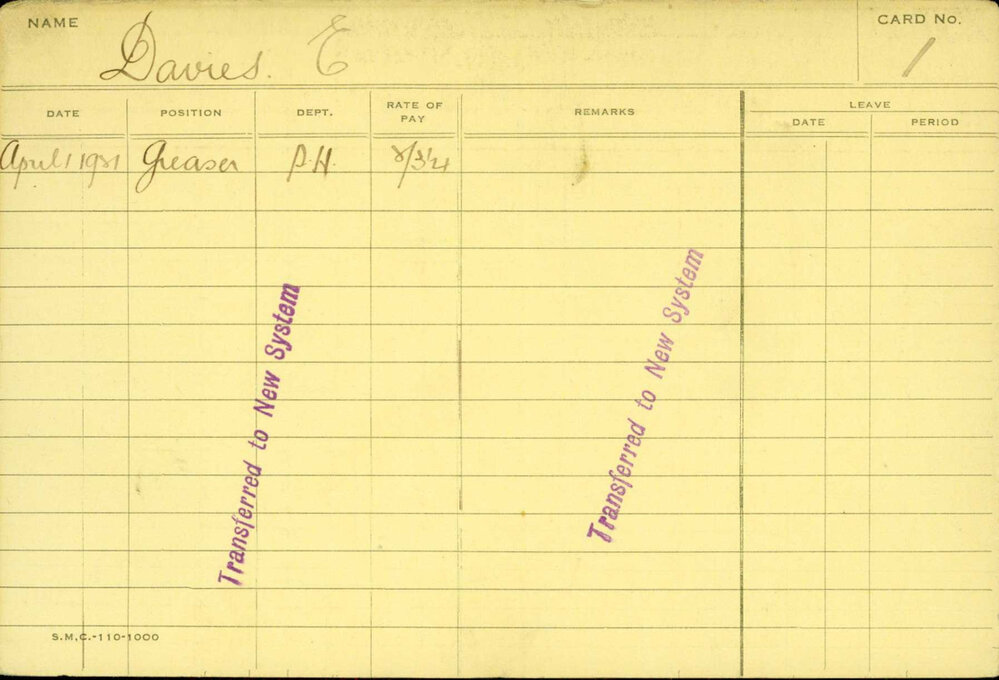 NAME Davies. E CARD No. 1
DATE POSITION DEPT. RATE OF PAY REMARKS LEAVE
DATE PERIOD
April 1 1921 Greaser P.H.
Transferred to New System
Transferred to New System
S.M.C.-110-1000